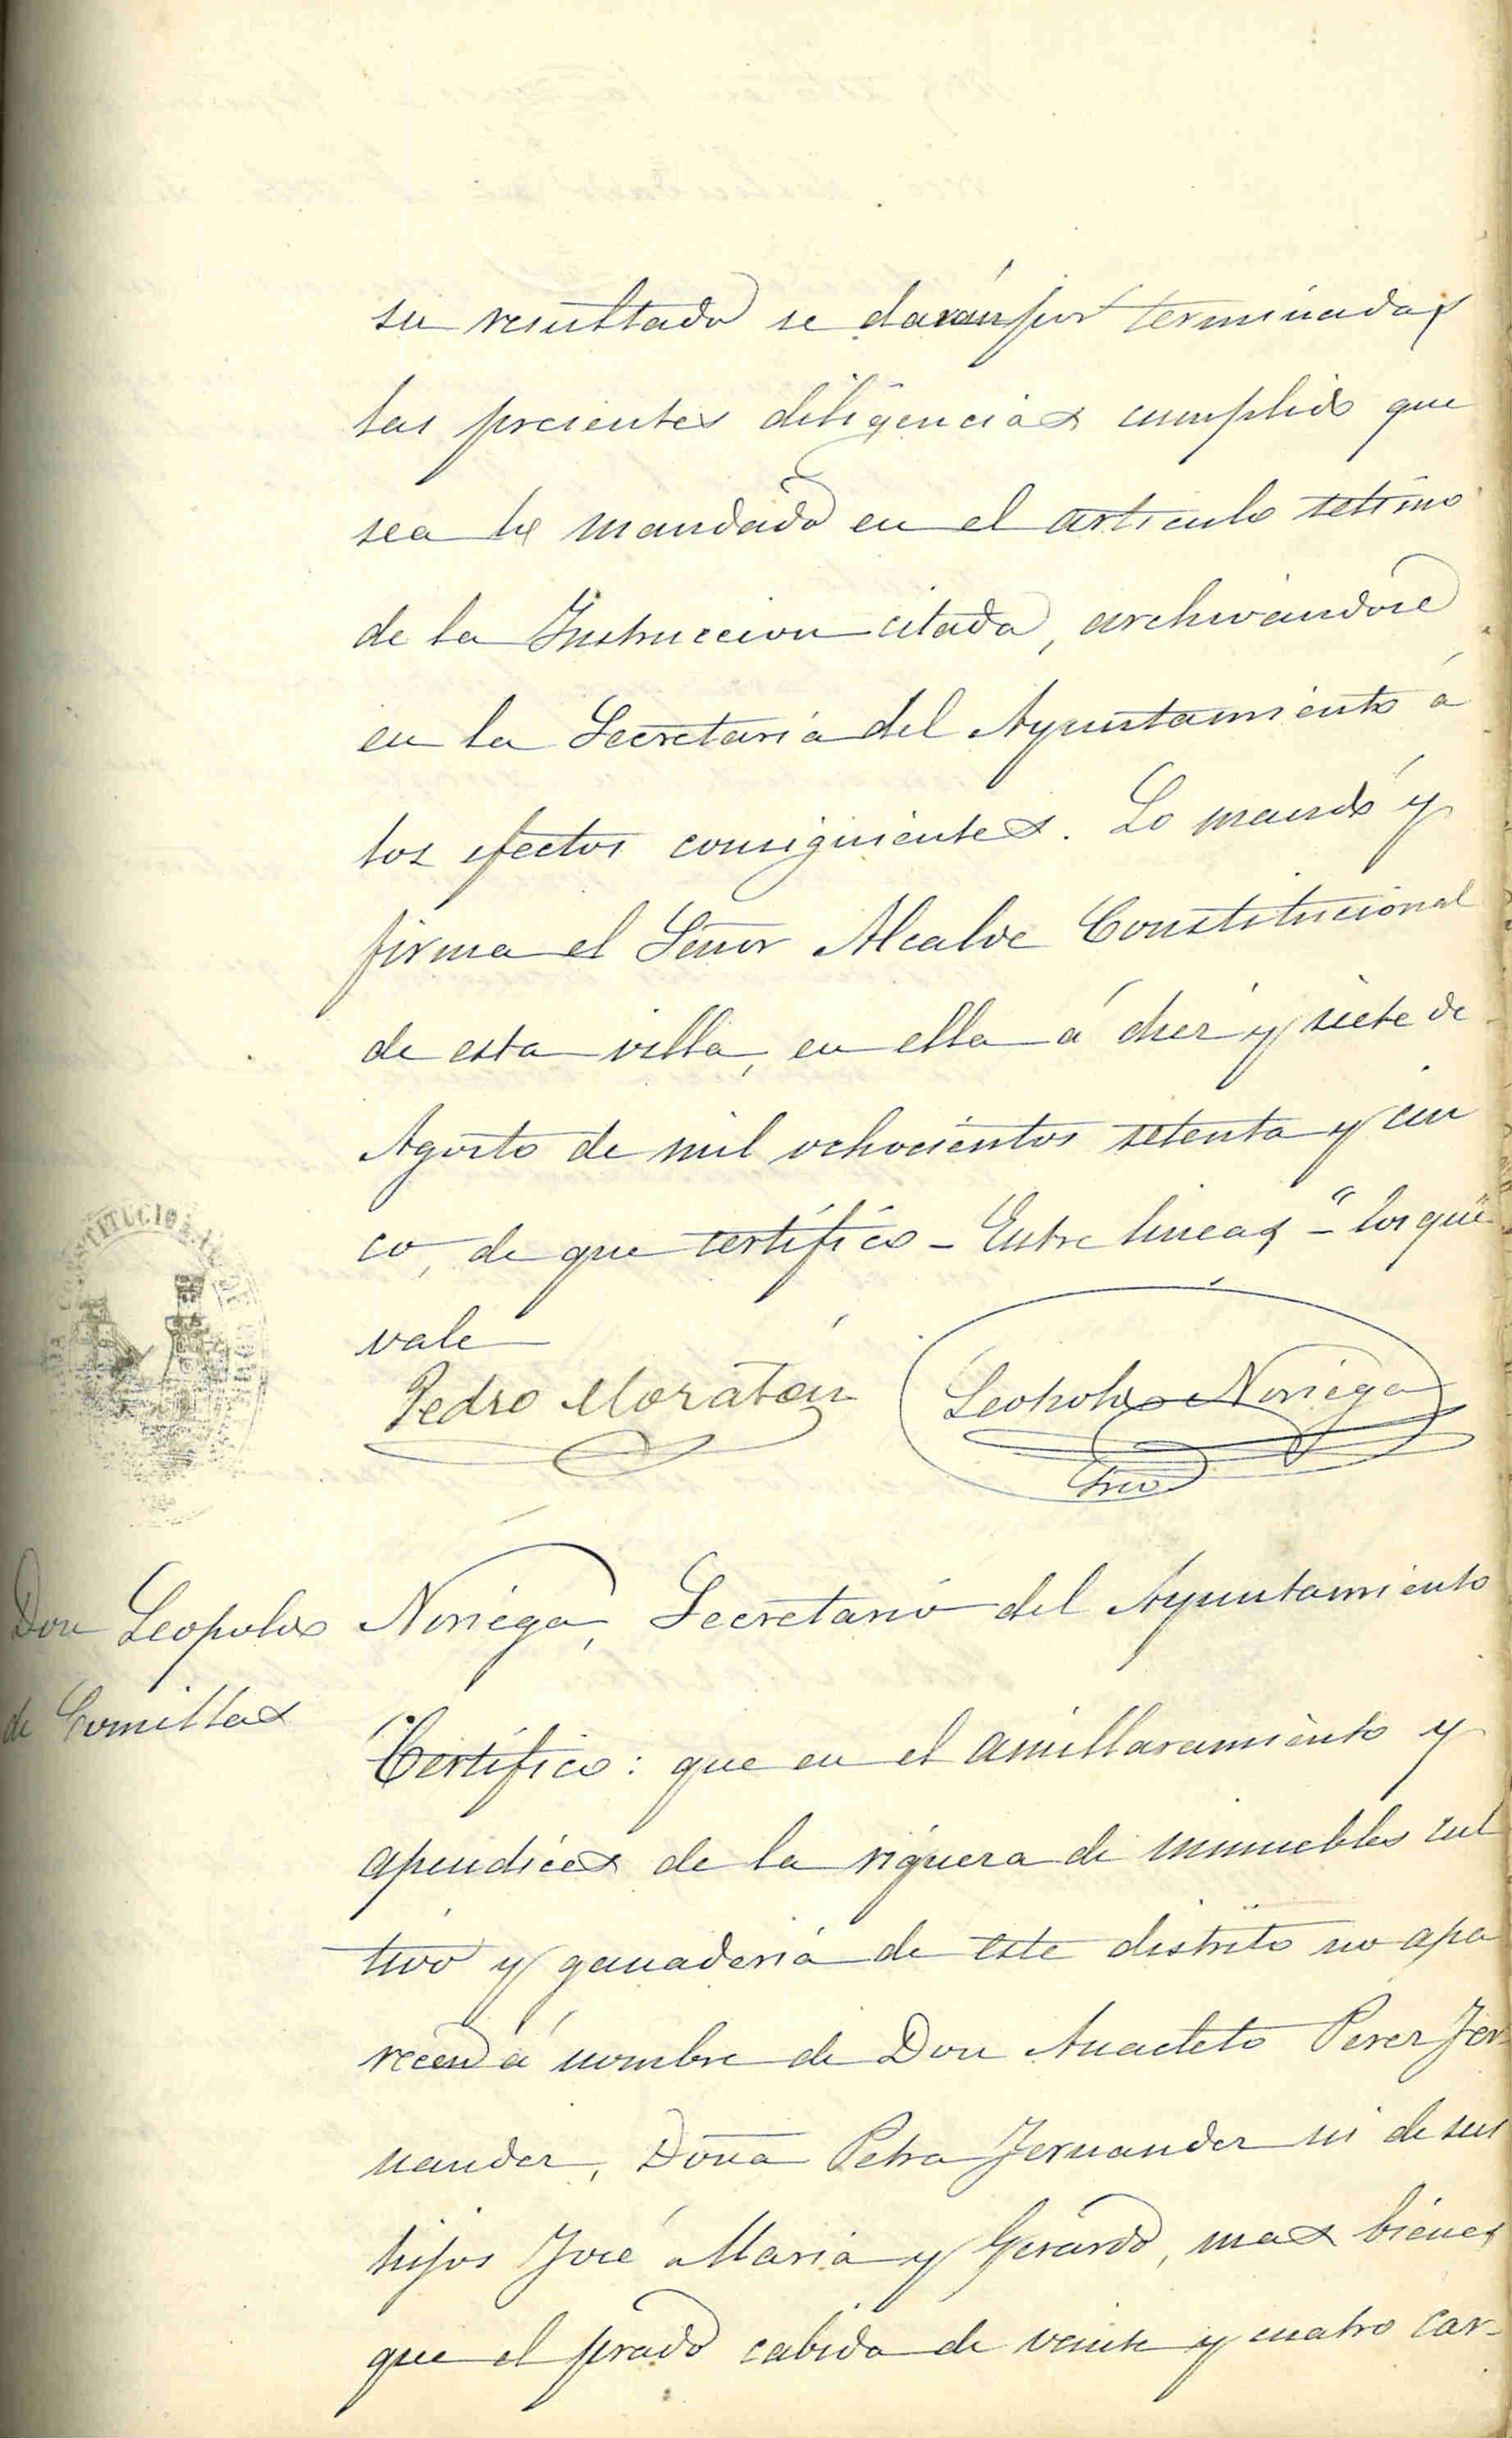 su resultado se darán por terminadas
las presentes diligencias cumplido que
sea lo mandado en el articulo setimo
de la Instruccion citada, archivandose
en la Secretaria del Ayuntamiento á
los efectos consiguientes. Lo mandó y
firma el Señor Alcalde Constitucional
de esta villa, en ella á diez y siete de
Agosto de mil ochocientos setenta y cin
co, de que certifico - Entre lineas - "los que"
vale
Pedro Moratón Leopoldo Noriega
Srio
Don Leopoldo Noriega, Secretario del Ayuntamiento
de Comillas
Certifico: que en el amillaramiento y
apendices de la riqueza de inmuebles cul
tivo y ganaderia de este distrito no apa
recen á nombre de Don Anacleto Perez Fer-
nandez, Doña Petra Fernandez ni de sus
hijos José Maria y Gerardo, mas bienes
que el prado cabida de veinte y cuatro car-